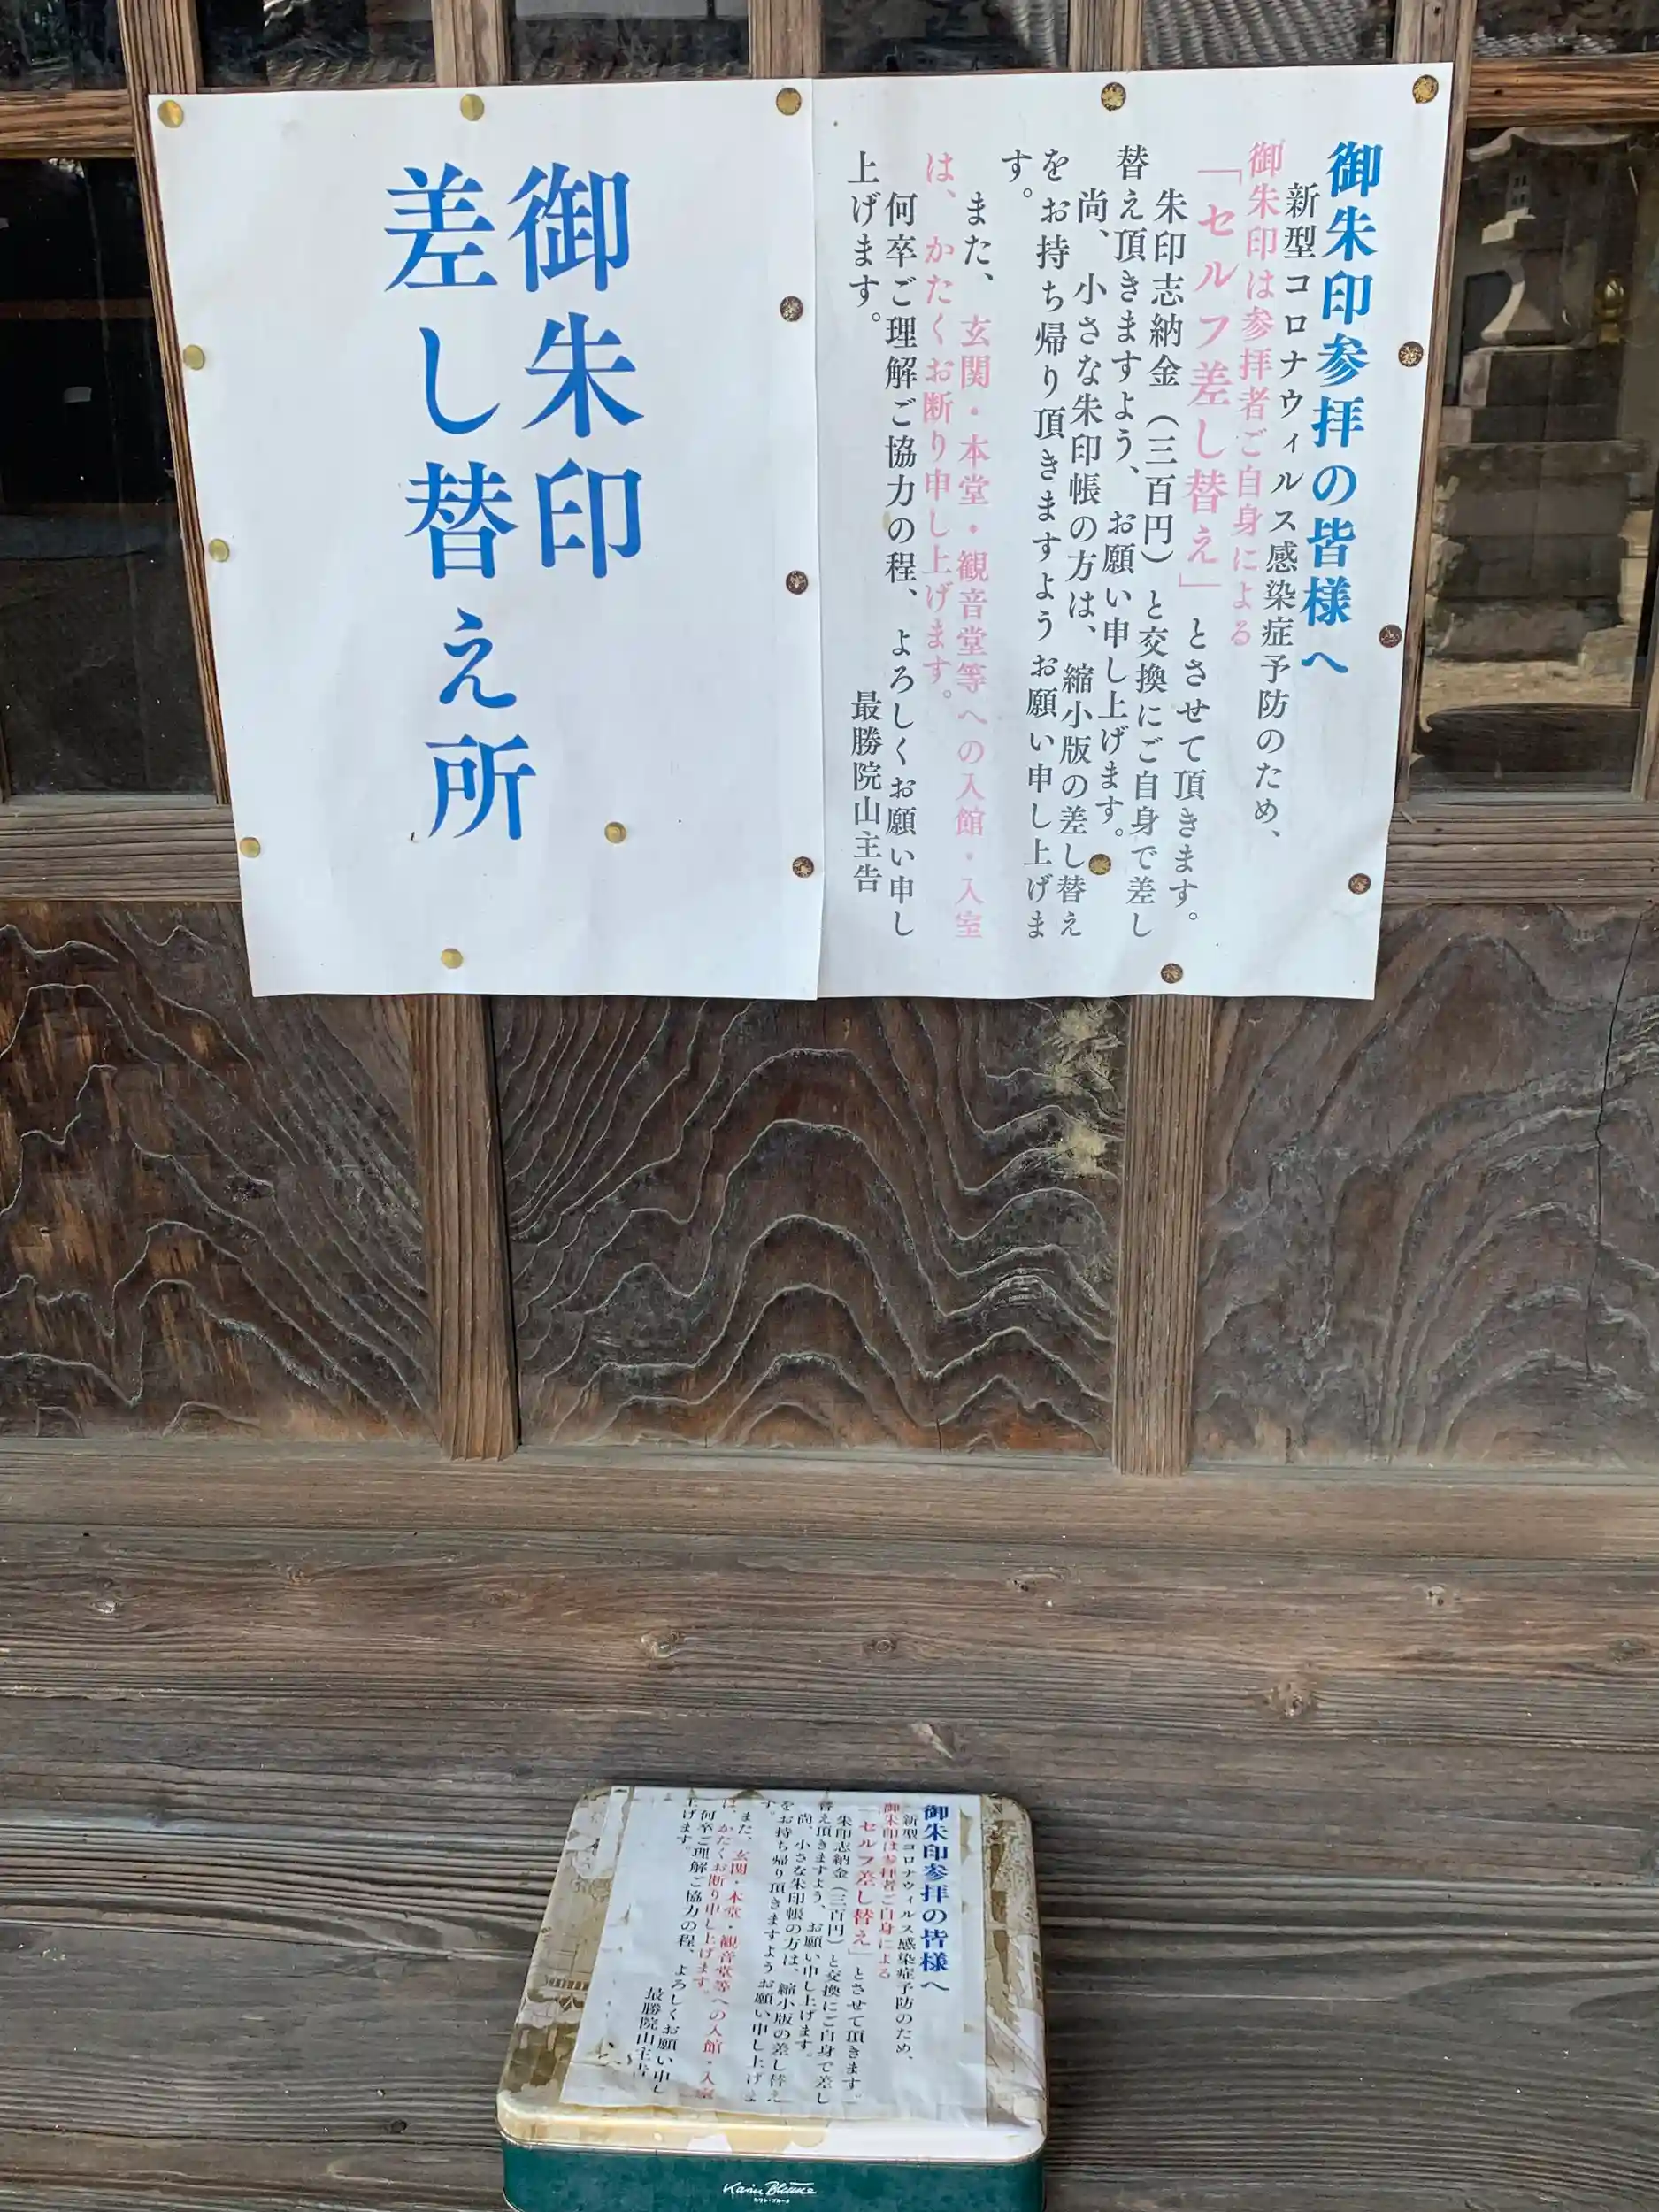 御朱印参拝の皆様へ
新型コロナウィルス感染症予防のため、
御朱印は参拝者ご自身による
「セルフ差し替え」とさせて頂きます。
朱印志納金（三百円）と交換にご自身で差し
替え頂きますよう、お願い申し上げます。
尚、小さな朱印帳の方は、縮小版の差し替え
をお持ち帰り頂きますようお願い申し上げま
す。
また、玄関・本堂・観音堂等への入館・入室
は、かたくお断り申し上げます。
何卒ご理解ご協力の程、よろしくお願い申し
上げます。
最勝院山主告
御朱印
差し替え所
御朱印参拝の皆様へ
新型コロナウィルス感染症予防のため、
御朱印は参拝者ご自身による
「セルフ差し替え」とさせて頂きます。
朱印志納金（三百円）と交換にご自身で差し
替え頂きますよう、お願い申し上げます。
尚、小さな朱印帳の方は、縮小版の差し替え
をお持ち帰り頂きますようお願い申し上げま
す。
また、玄関・本堂・観音堂等への入館・入室
は、かたくお断り申し上げます。
何卒ご理解ご協力の程、よろしくお願い申し
上げます。
最勝院山主告
Karin Blume
カリン・ブルーメ